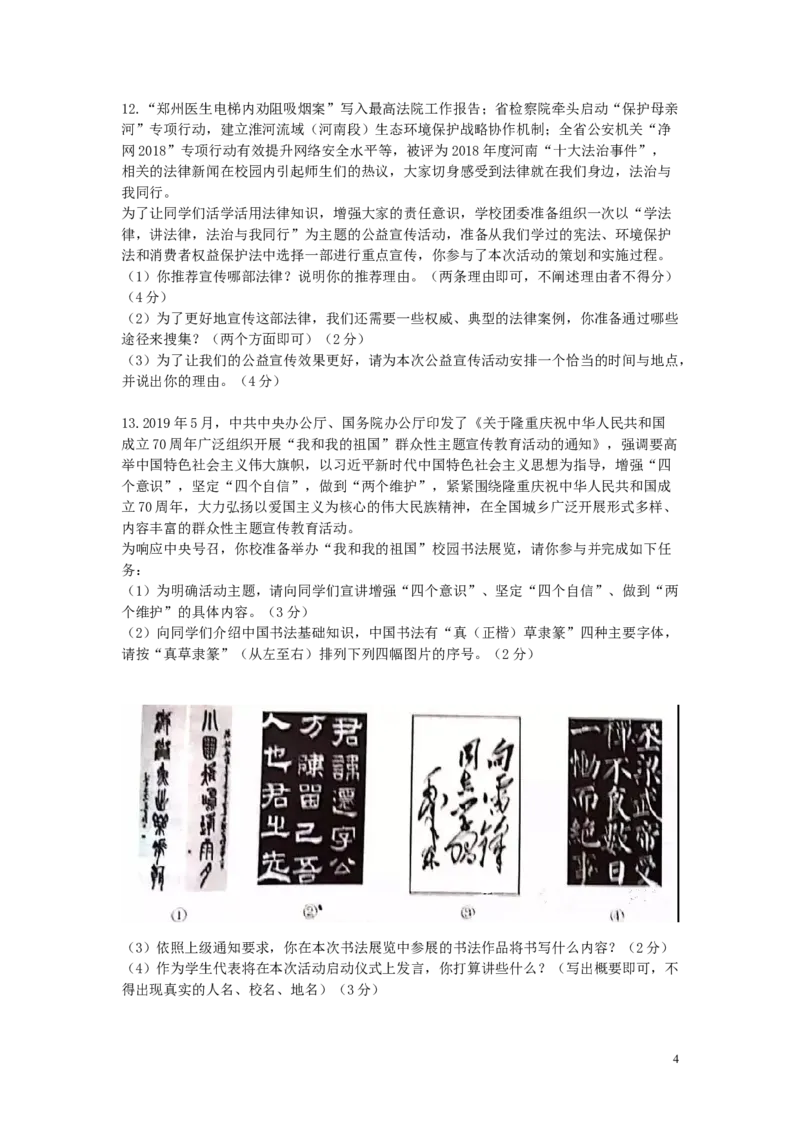 12.“郑州医生电梯内劝阻吸烟案”写入最高法院工作报告；省检察院牵头启动“保护母亲
河”专项行动，建立淮河流域（河南段）生态环境保护战略协作机制；全省公安机关“净
网2018”专项行动有效提升网络安全水平等，被评为2018年度河南“十大法治事件”，
相关的法律新闻在校园内引起师生们的热议，大家切身感受到法律就在我们身边，法治与
我同行。
为了让同学们活学活用法律知识，增强大家的责任意识，学校团委准备组织一次以“学法
律，讲法律，法治与我同行”为主题的公益宣传活动，准备从我们学过的宪法、环境保护
法和消费者权益保护法中选择一部进行重点宣传，你参与了本次活动的策划和实施过程。
（1）你推荐宣传哪部法律？说明你的推荐理由。（两条理由即可，不阐述理由者不得分）
（4分）
（2）为了更好地宣传这部法律，我们还需要一些权威、典型的法律案例，你准备通过哪些
途径来搜集？（两个方面即可）（2分）
（3）为了让我们的公益宣传效果更好，请为本次公益宣传活动安排一个恰当的时间与地点，
并说出你的理由。（4分）
13.2019年5月，中共中央办公厅、国务院办公厅印发了《关于隆重庆祝中华人民共和国
成立70周年广泛组织开展“我和我的祖国”群众性主题宣传教育活动的通知》，强调要高
举中国特色社会主义伟大旗帜，以习近平新时代中国特色社会主义思想为指导，增强“四
个意识”，坚定“四个自信”，做到“两个维护”，紧紧围绕隆重庆祝中华人民共和国成
立70周年，大力弘扬以爱国主义为核心的伟大民族精神，在全国城乡广泛开展形式多样、
内容丰富的群众性主题宣传教育活动。
为响应中央号召，你校准备举办“我和我的祖国”校园书法展览，请你参与并完成如下任
务：
（1）为明确活动主题，请向同学们宣讲增强“四个意识”、坚定“四个自信”、做到“两
个维护”的具体内容。（3分）
（2）向同学们介绍中国书法基础知识，中国书法有“真（正楷）草隶篆”四种主要字体，
请按“真草隶篆”（从左至右）排列下列四幅图片的序号。（2分）
君讳迁字公
方陈留己吾
人也君之先
向雷锋
同志学习
毛泽东
一恸而绝
① ② ③ ④
（3）依照上级通知要求，你在本次书法展览中参展的书法作品将书写什么内容？（2分）
（4）作为学生代表将在本次活动启动仪式上发言，你打算讲些什么？（写出概要即可，不
得出现真实的人名、校名、地名）（3分）
4